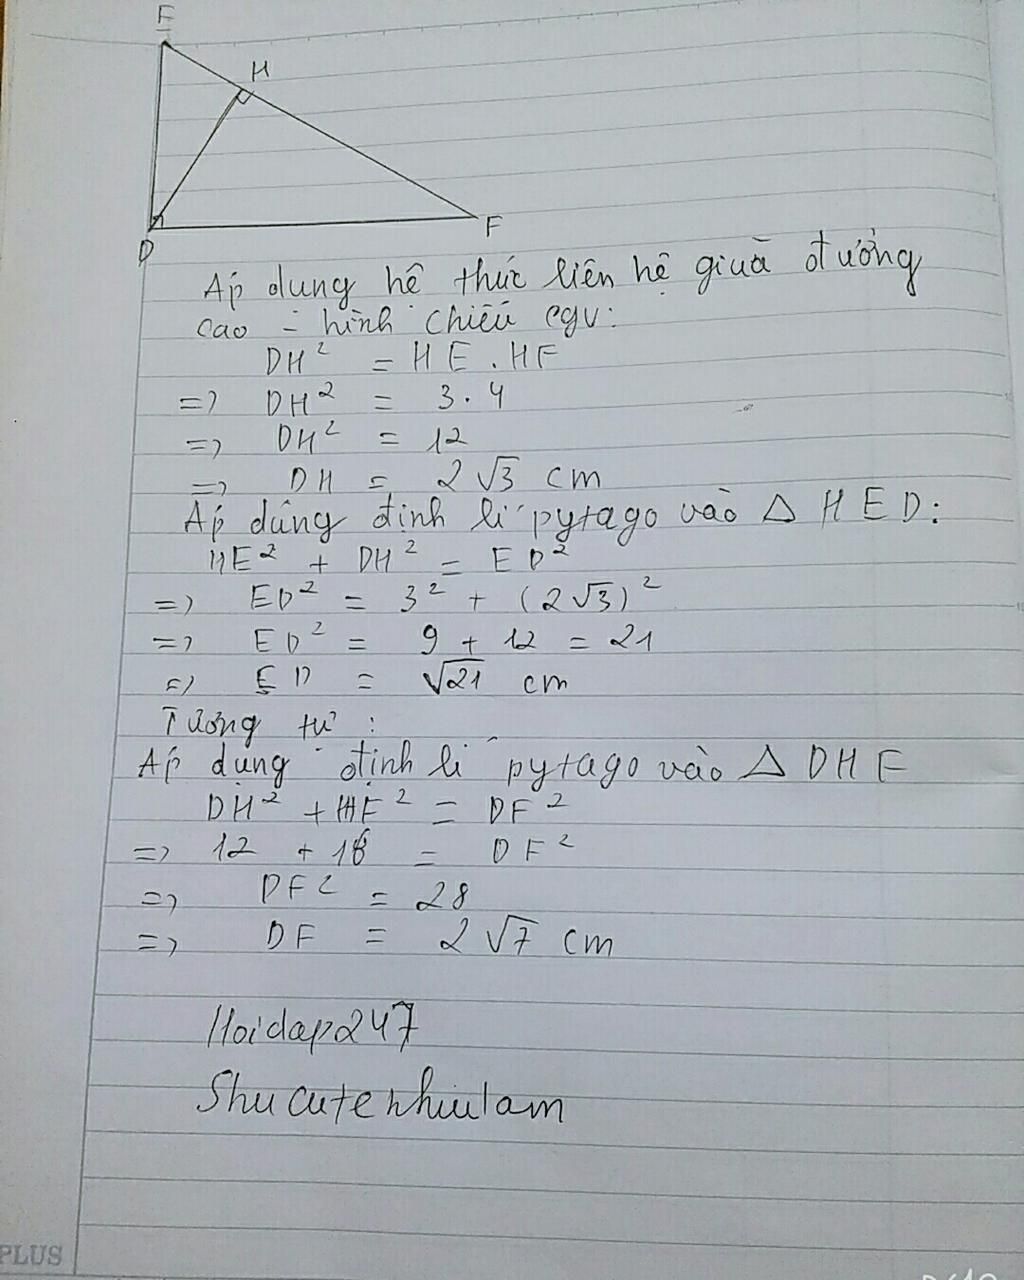 E
H
D
F
Áp dung hê thức liên hệ giưã đường
cao - hình chiếu cgv:
DH² = HE . HF
=> DH² = 3.4
=> DH² = 12
=> DH = 2√3 cm
Áp dúng định lí pytago vào △ HED:
HE² + DH² = ED²
=> ED² = 3² + (2√3)²
=> ED² = 9 + 12 = 21
=> ED = √21 cm
Tương tự :
Áp dụng định lí pytago vào △ DHF
DH² + HF² = DF²
=> 12 + 16 = DF²
=> DF² = 28
=> DF = 2√7 cm
Hoidap247
Shucutenhiulam
PLUS